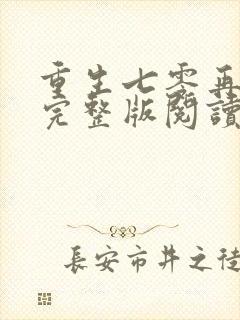 重生七零再
完整版閱讀
長安市井之徒